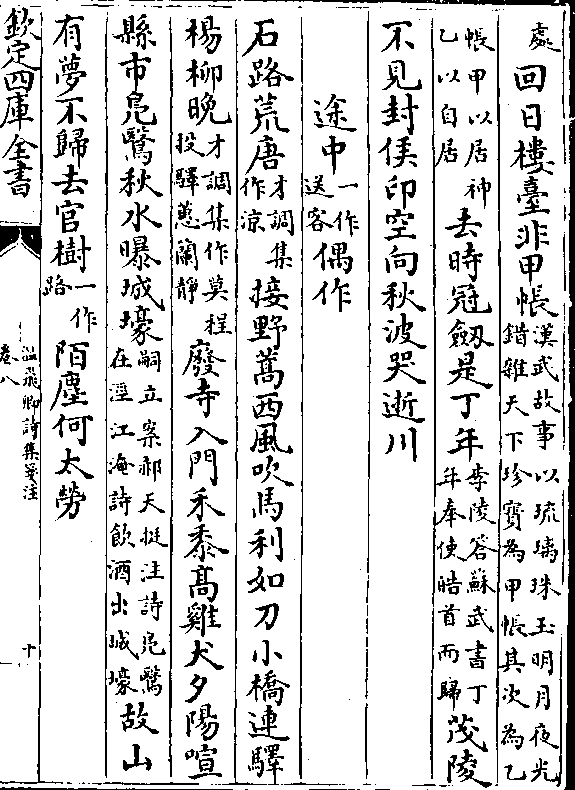 處回日樓臺非甲帳漢武故事以琉璃珠玉明月夜光錯雜天下珍寶為甲帳其次為乙
帳甲以居神乙以自居去時冠劒是丁年李陵答蘇武書丁年奉使皓首而歸茂陵
不見封侯印空向秋波哭逝川
途中一作送客偶作
石路荒唐才調集作涼接野蒿西風吹馬利如刀小橋連驛
楊柳晚才調集作莫程投驛蕙蘭靜廢寺入門禾黍高雞犬夕陽喧
縣市鳬鷖秋水曝城壕嗣立案郝天挺注詩鳬鷖在涇江淹詩飲酒出城壕故山
有夢不歸去官樹一作路陌塵何太勞
欽定四庫全書
温飛卿詩集箋注
卷八
十